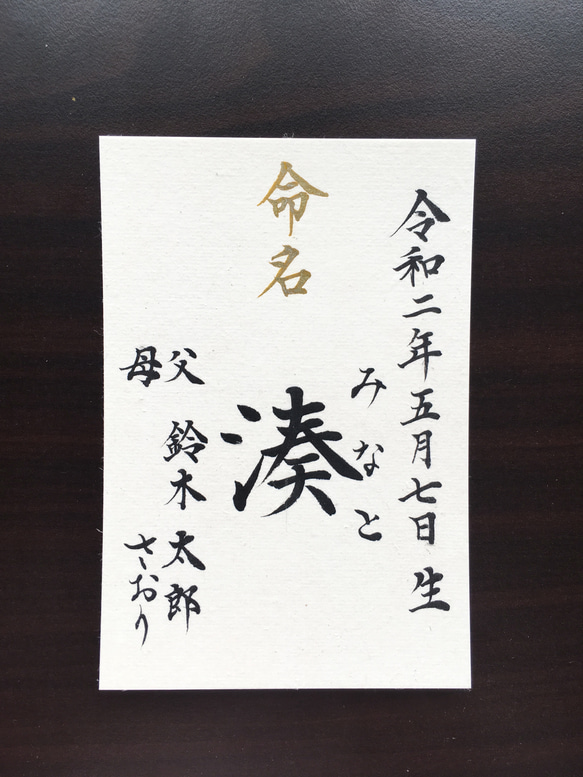 命名
令和二年五月七日 生
みなと
湊
父 鈴木 太郎
母 さおり